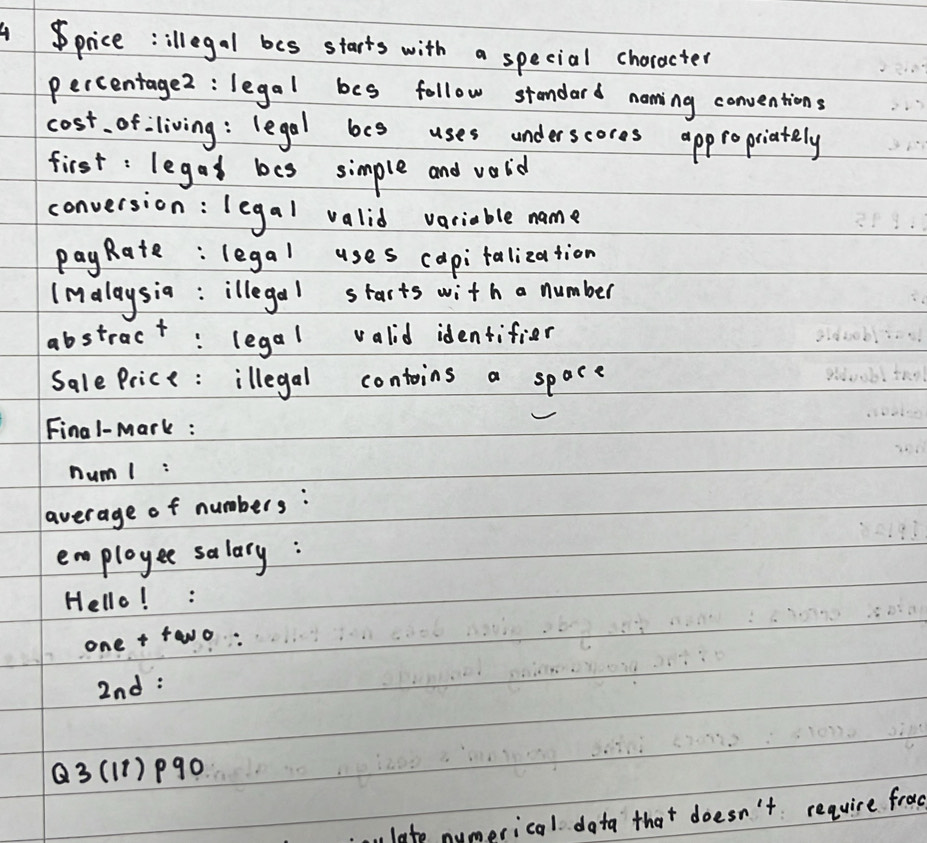 4 $price : illegal bcs starts with a special character
percentage2 : legal bcs follow standard naming conventions
cost_of_living : legal bcs uses underscores appropriately
first : legal bcs simple and valid
conversion : legal valid variable name
payRate : legal uses capitalization
1Malaysia : illegal starts with a number
abstract : legal valid identifier
Sale Price : illegal contains a space
Final-Mark :
num1 :
average of numbers :
employee salary :
Hello! :
one + two :
2nd :
Q3 (11) P90
numerical data that doesn't require